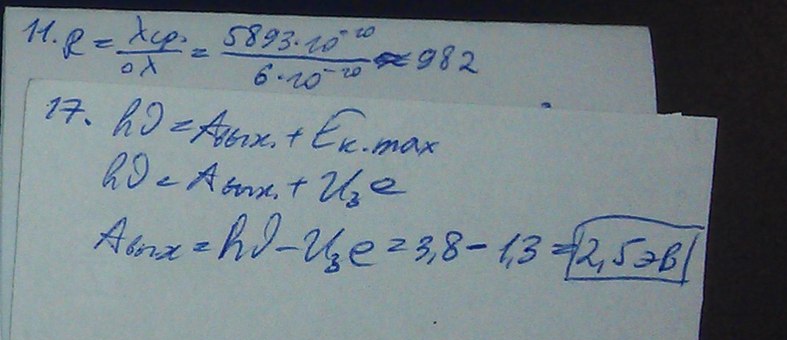 11. R = λср. / Δλ = 5893·10⁻¹⁰ / 6·10⁻¹⁰ ≈ 982
17. hν = Aвых. + Eк.max
hν = Aвых. + Uз e
Aвых = hν - Uз e = 3,8 - 1,3 = 2,5 эВ